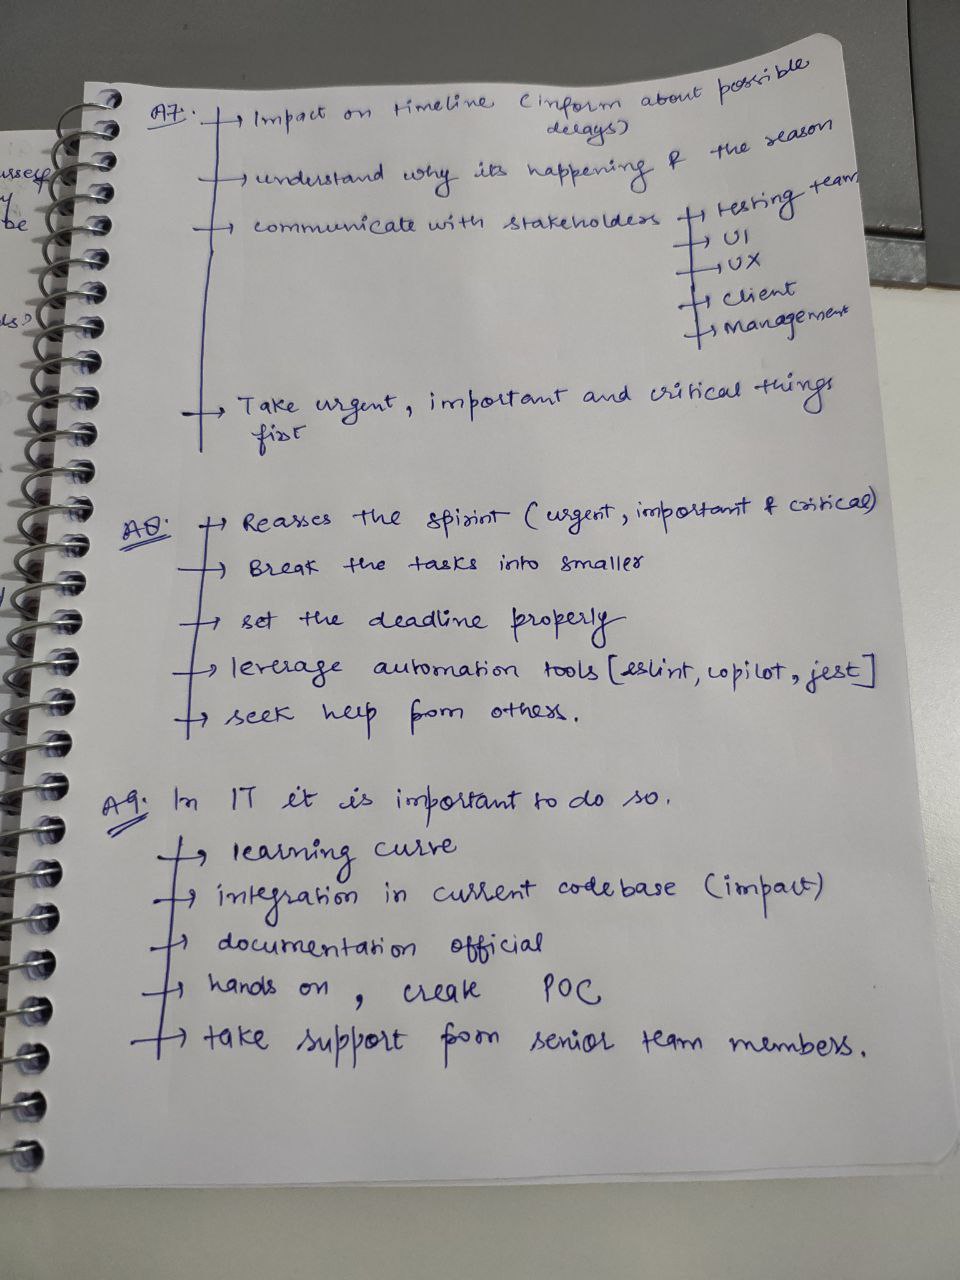 ussect
y
be
ds)
A7:. → Impact on timeline (inform about possible
delays)
→ understand why its happening & the reason
→ communicate with stakeholders → testing team
→ UI
→ UX
→ client
→ Management
→ Take urgent, important and critical things
first
A8. → Reasses the spirint (urgent, important & critical)
→ Break the tasks into smaller
→ set the deadline properly
→ leverage automation tools [eslint, copilot, jest]
→ seek help from others.
A9. In IT it is important to do so.
→ learning curve
→ integration in current codebase (impact)
→ documentation official
→ hands on, create POC
→ take support from senior team members.